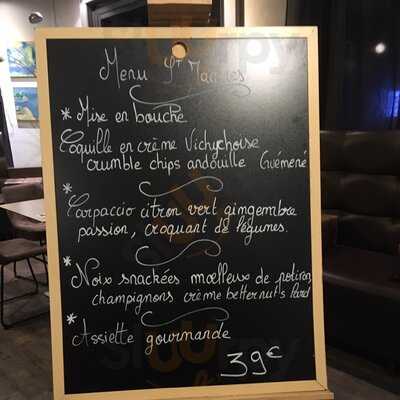 Menu St Jacques
* Mise en bouche
Coquille en crème Vichychoise
crumble chips andouille Guémené
*
Carpaccio citron vert gingembre
passion, croquant de légumes.
*
Noix snackées moelleux de potiron,
champignons crème betternut's lard
*
Assiette gourmande
39€